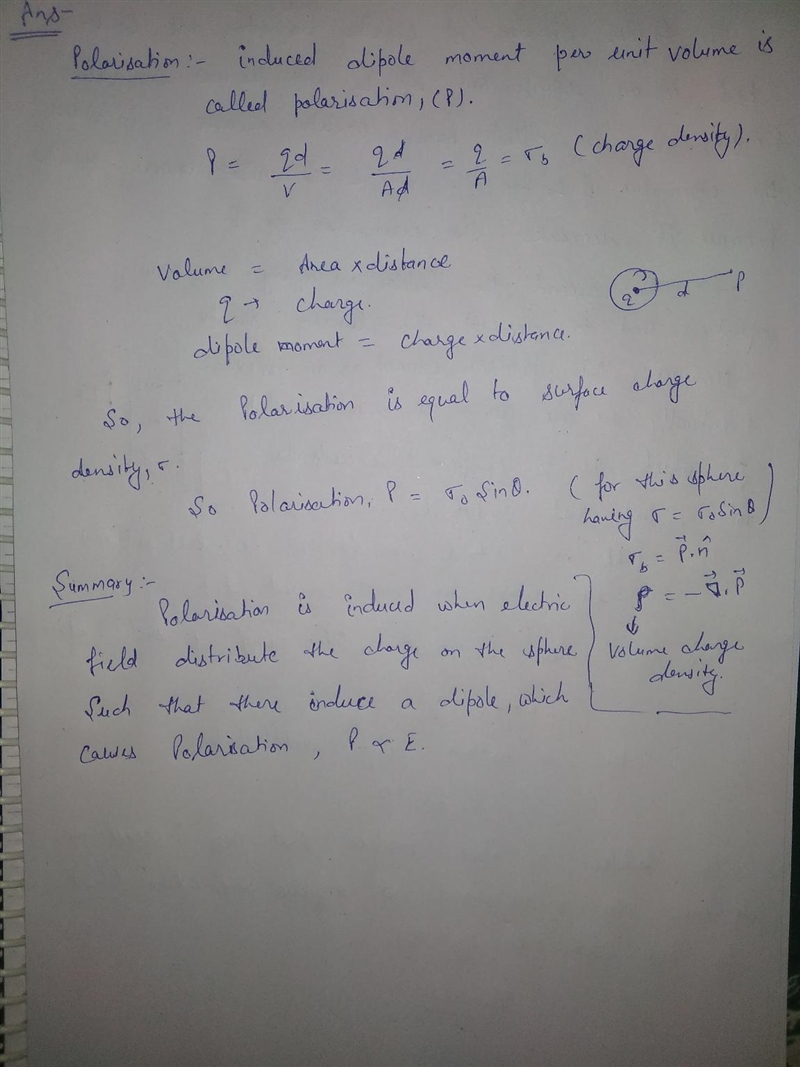 Ans-
Polarisation:- induced dipole moment per unit volume is
called polarisation, (P).
P = qd/V = qd/Ad = q/A = σb (charge density).
Volume = Area × distance
q → charge.
q d P
dipole moment = charge × distance.
So, the Polarisation is equal to surface charge
density, σ.
So Polarisation, P = σ0 Sinθ. (for this sphere
having σ = σ0 Sinθ)
σb = P⃗.n̂
ρ = -∇⃗.P⃗
↓
Volume charge
density.
Summary:-
Polarisation is induced when electric
field distribute the charge on the sphere
Such that there induce a dipole, which
causes Polarisation, P ∝ E.